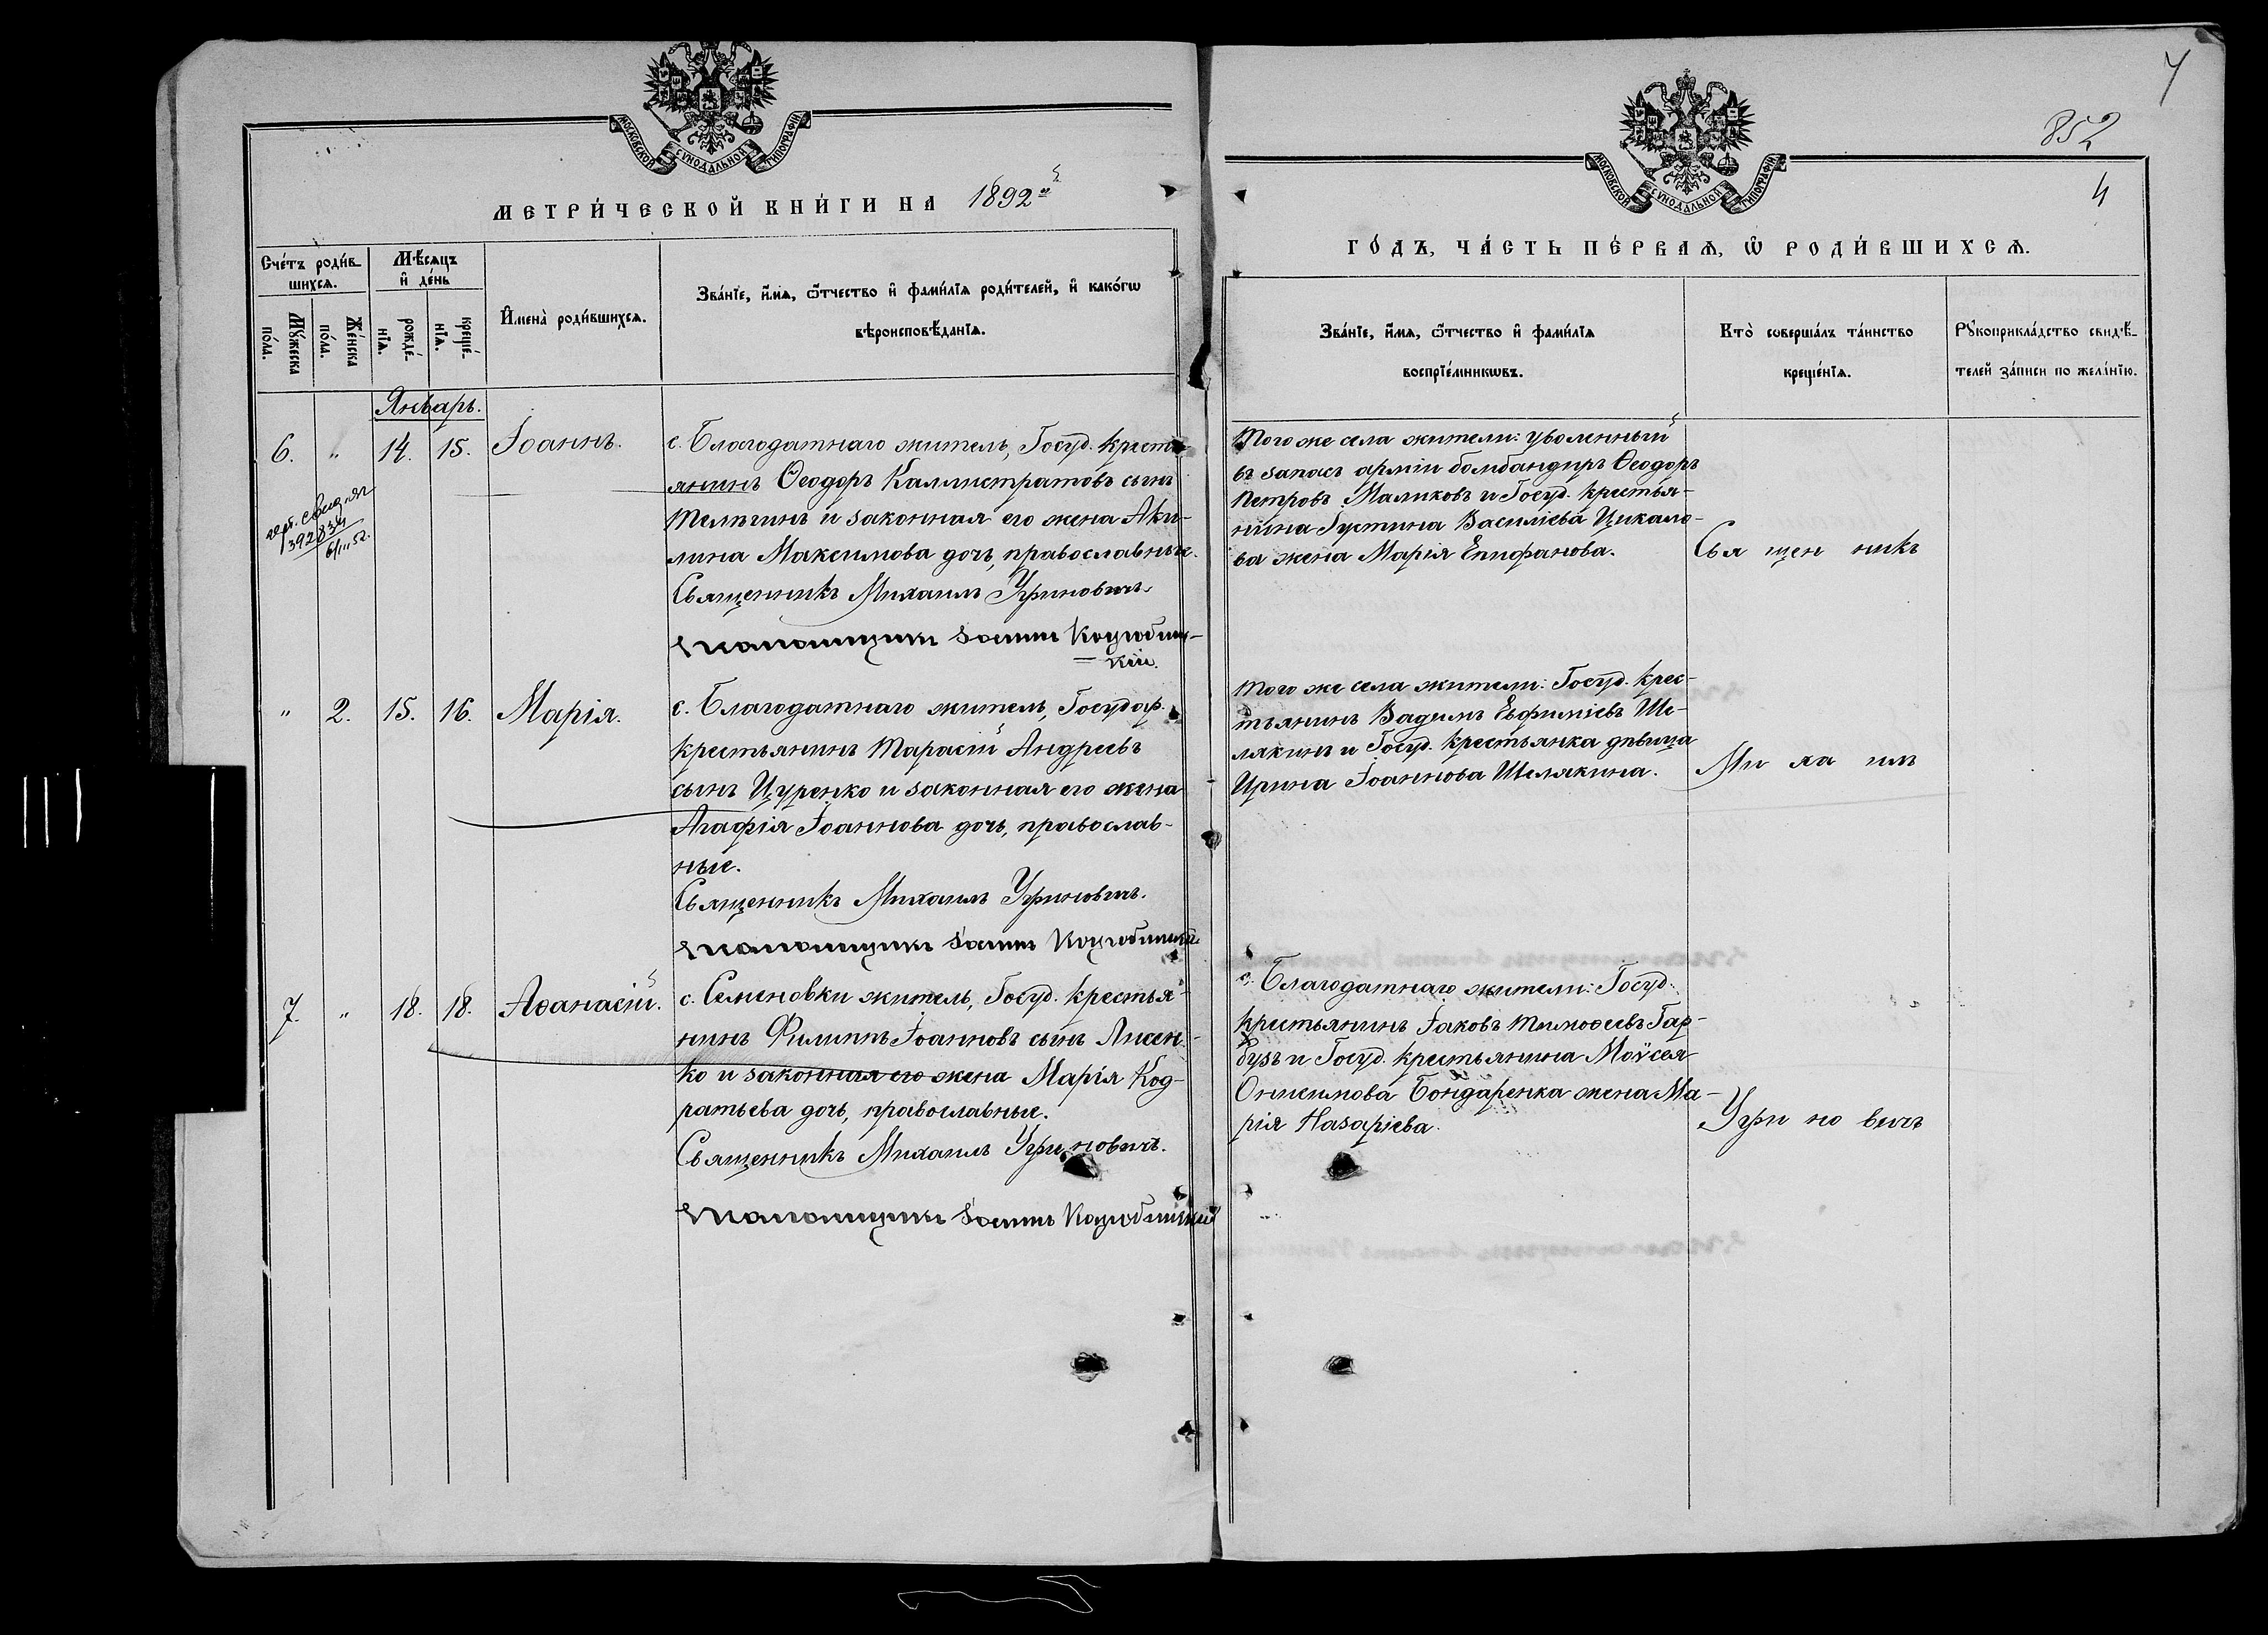 МОСКОВСКОЙ СѴНОДАЛЬНОЙ ТИПОГРАФІИ
МЕТРИ́ЧЕСКОЙ КНИ́ГИ НА 1892й
Сче́тъ роди́в-
шихсѧ.
Мѣ́сѧцъ
и҆ де́нь
Мꙋ́жеска
по́ла.
Же́нска
по́ла.
рожде́-
нїѧ.
креще́-
нїѧ.
И҆мена̀ роди́вшихсѧ.
Зва́нїе, и҆́мѧ, ѻ҆́тчество и҆ фами́лїѧ роди́телей, и҆ како́гѡ
вѣроисповѣ́данїѧ.
Январь.
6. " 14. 15. Іоаннъ.
с. Благодатнаго житель, Госуд. кресть-
янинъ Ѳеодоръ Каллистратовъ сынъ
и законная его жена Аки-
лина Максимова дочь, православные.
Священникъ Михаилъ Угриновичъ.
Псаломщикъ Іоаннъ Коцюбин-
скій.
39283
6/III 52.
" 2. 15. 16. Марія.
с. Благодатнаго житель, Государ.
крестьянинъ Тарасій Андреевъ
сынъ Цуренко и законная его жена
Агафія Іоаннова дочь, православ-
ные.
Священникъ Михаилъ Угриновичъ.
Псаломщикъ Іоаннъ
7. " 18. 18. Аѳанасій.
с. Семеновки житель, Госуд. крестья-
нинъ Филиппъ Іоанновъ сынъ Лисен-
ко и законная его жена Марія Код-
ратьева дочь, православные.
Священникъ Михаилъ Угриновичъ.
Псаломщикъ Іоаннъ Коцюбинскій
7
852
4
МОСКОВСКОЙ СѴНОДАЛЬНОЙ ТИПОГРАФІИ
ГО́ДЪ, ЧА́СТЬ ПЕ́РВАѦ, Ѡ҆ РОДИ́ВШИХСѦ.
Зва́нїе, и҆́мѧ, ѻ҆́тчество и҆ фами́лїѧ
воспрїе́мникѡвъ.
Кто̀ соверша́лъ та́инство
креще́нїѧ.
Рꙋкоприкла́дство свидѣ́-
телей за́писи по жела́нїю.
Того же села жители: уволенный
въ запасъ арміи бомбандиръ Ѳеодоръ
Петровъ Маликовъ и Госуд. крестья-
нина Іустина Василіева Цикало-
ва жена Марія Епифанова.
Свя щен никъ
Того же села жители: Госуд. крес-
тьянинъ Вадимъ Евфиміевъ Ше-
лякинъ и Госуд. крестьянка дѣвица
Ирина Іоаннова Шелякина.
Ми ха илъ
с. Благодатнаго жители: Госуд.
крестьянинъ Іаковъ Тимоѳеевъ Гар-
бузъ и Госуд. крестьянина Моѵсея
Онисимова Бондаренка жена Ма-
рія Назаріева.
Угри но вичъ